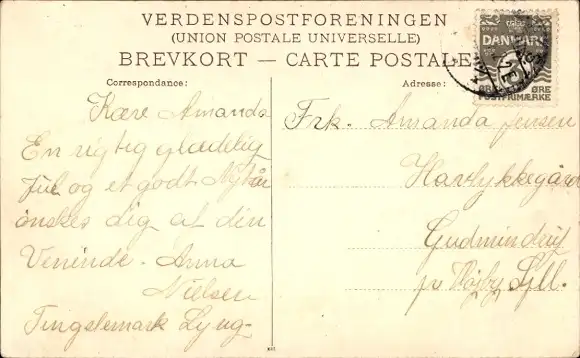 VERDENSPOSTFORENINGEN
(UNION POSTALE UNIVERSELLE)
BREVKORT — CARTE POSTALE
DANMARK
ØRE ØRE
POSTFRIMÆRKE
Correspondance:
Kære Amanda
En rigtig glædelig
Jul og et godt Nytår
ønskes dig af din
Veninde. Anna
Nielsen
Tingstemark Lyng
Adresse:
Frk. Amanda Jensen
Havlykkegård
Gudmindrup
pr Højby Sjll.